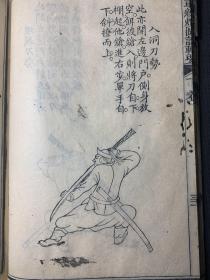 入洞刀勢
此亦開左邊門戶側身放
空餌彼鎗入則將刀自下
棚起他鎗進右步單手自
下斜撩而上